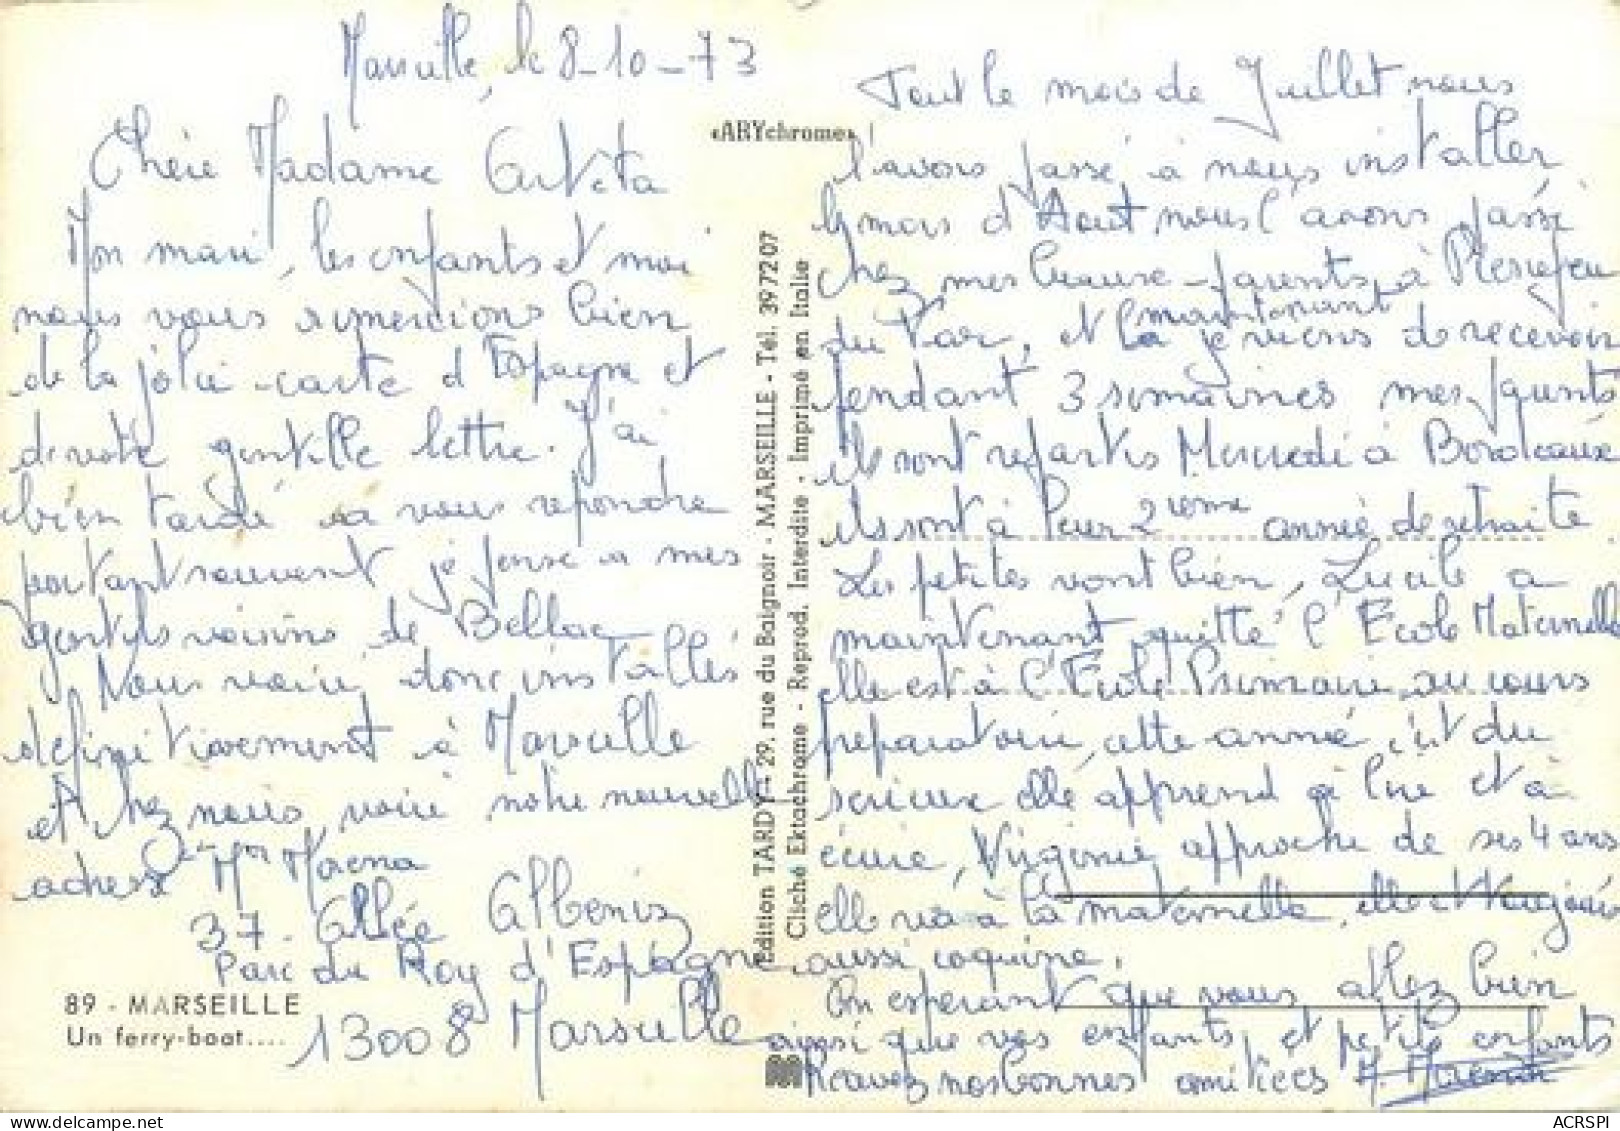 Marseille, le 8-10-73
Chère Madame
Mon mari, les enfants et moi
nous vous remercions bien
de la jolie carte d'Espagne et
de votre gentille lettre. J'ai
bien tardé à vous repondre
pourtant souvent je pense à mes
gentils voisins de Bellac
Nous voici donc installés
définitivement à Marseille
et chez nous voici notre nouvelle
adresse Mr Morena
37 Allée Albeniz
Parc du Roy d'Espagne
13008 Marseille
89 - MARSEILLE
Un ferry-boat....
«ARYchrome»
Edition TARDY - 29, rue du Baignoir - MARSEILLE - Tél. 397207
Cliché Ektachrome - Reprod. Interdite - Imprimé en Italie
Tout le mois de Juillet nous
l'avons passé à nous installer
le mois d'Aout nous l'avons passé
chez mes beaux-parents à Pierrefeu
du Var, et là maintenant je viens de recevoir
pendant 3 semaines mes parents
ils sont repartis Mercredi à Bordeaux
ils sont à leur 2ieme année de retraite
Les petites vont bien, Lucile a
maintenant quitté l'Ecole Maternelle
elle est à l'Ecole Primaire au cours
préparatoire, cette année c'est du
serieux elle apprend à lire et à
écrire, Virginie approche de ses 4 ans
elle va à la maternelle, elle est toujours
aussi coquine.
En esperant que vous allez bien
ainsi que vos enfants et petits enfants
Recevez nos bonnes amitiées
ACRSPI